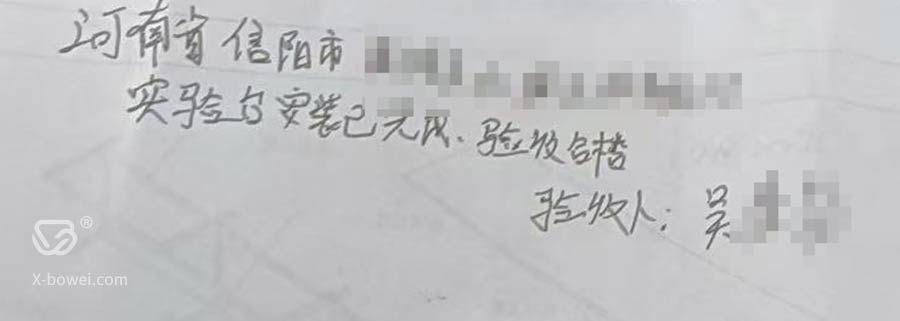 河南省信阳市
实验室安装已完成、验收合格
验收人：吴
®
X-bowei.com